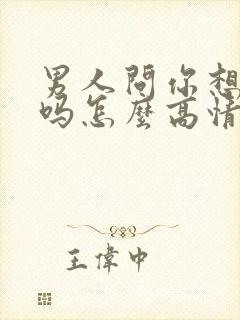 男人問你想
吗怎麼高情
王偉中